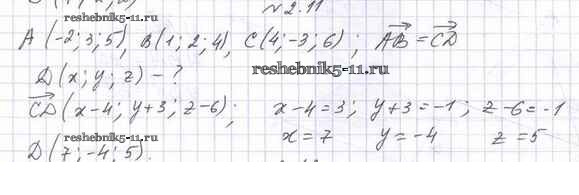 № 2.11
reshebnik5-11.ru
A (-2; 3; 5), B(1; 2; 4), C(4; -3; 6) ; AB⃗ = CD⃗
D(x; y; z) - ?
reshebnik5-11.ru
CD⃗ (x-4; y+3; z-6); x-4=3; y+3=-1; z-6=-1
reshebnik5-11.ru
x=7 y=-4 z=5
D (7; -4; 5).